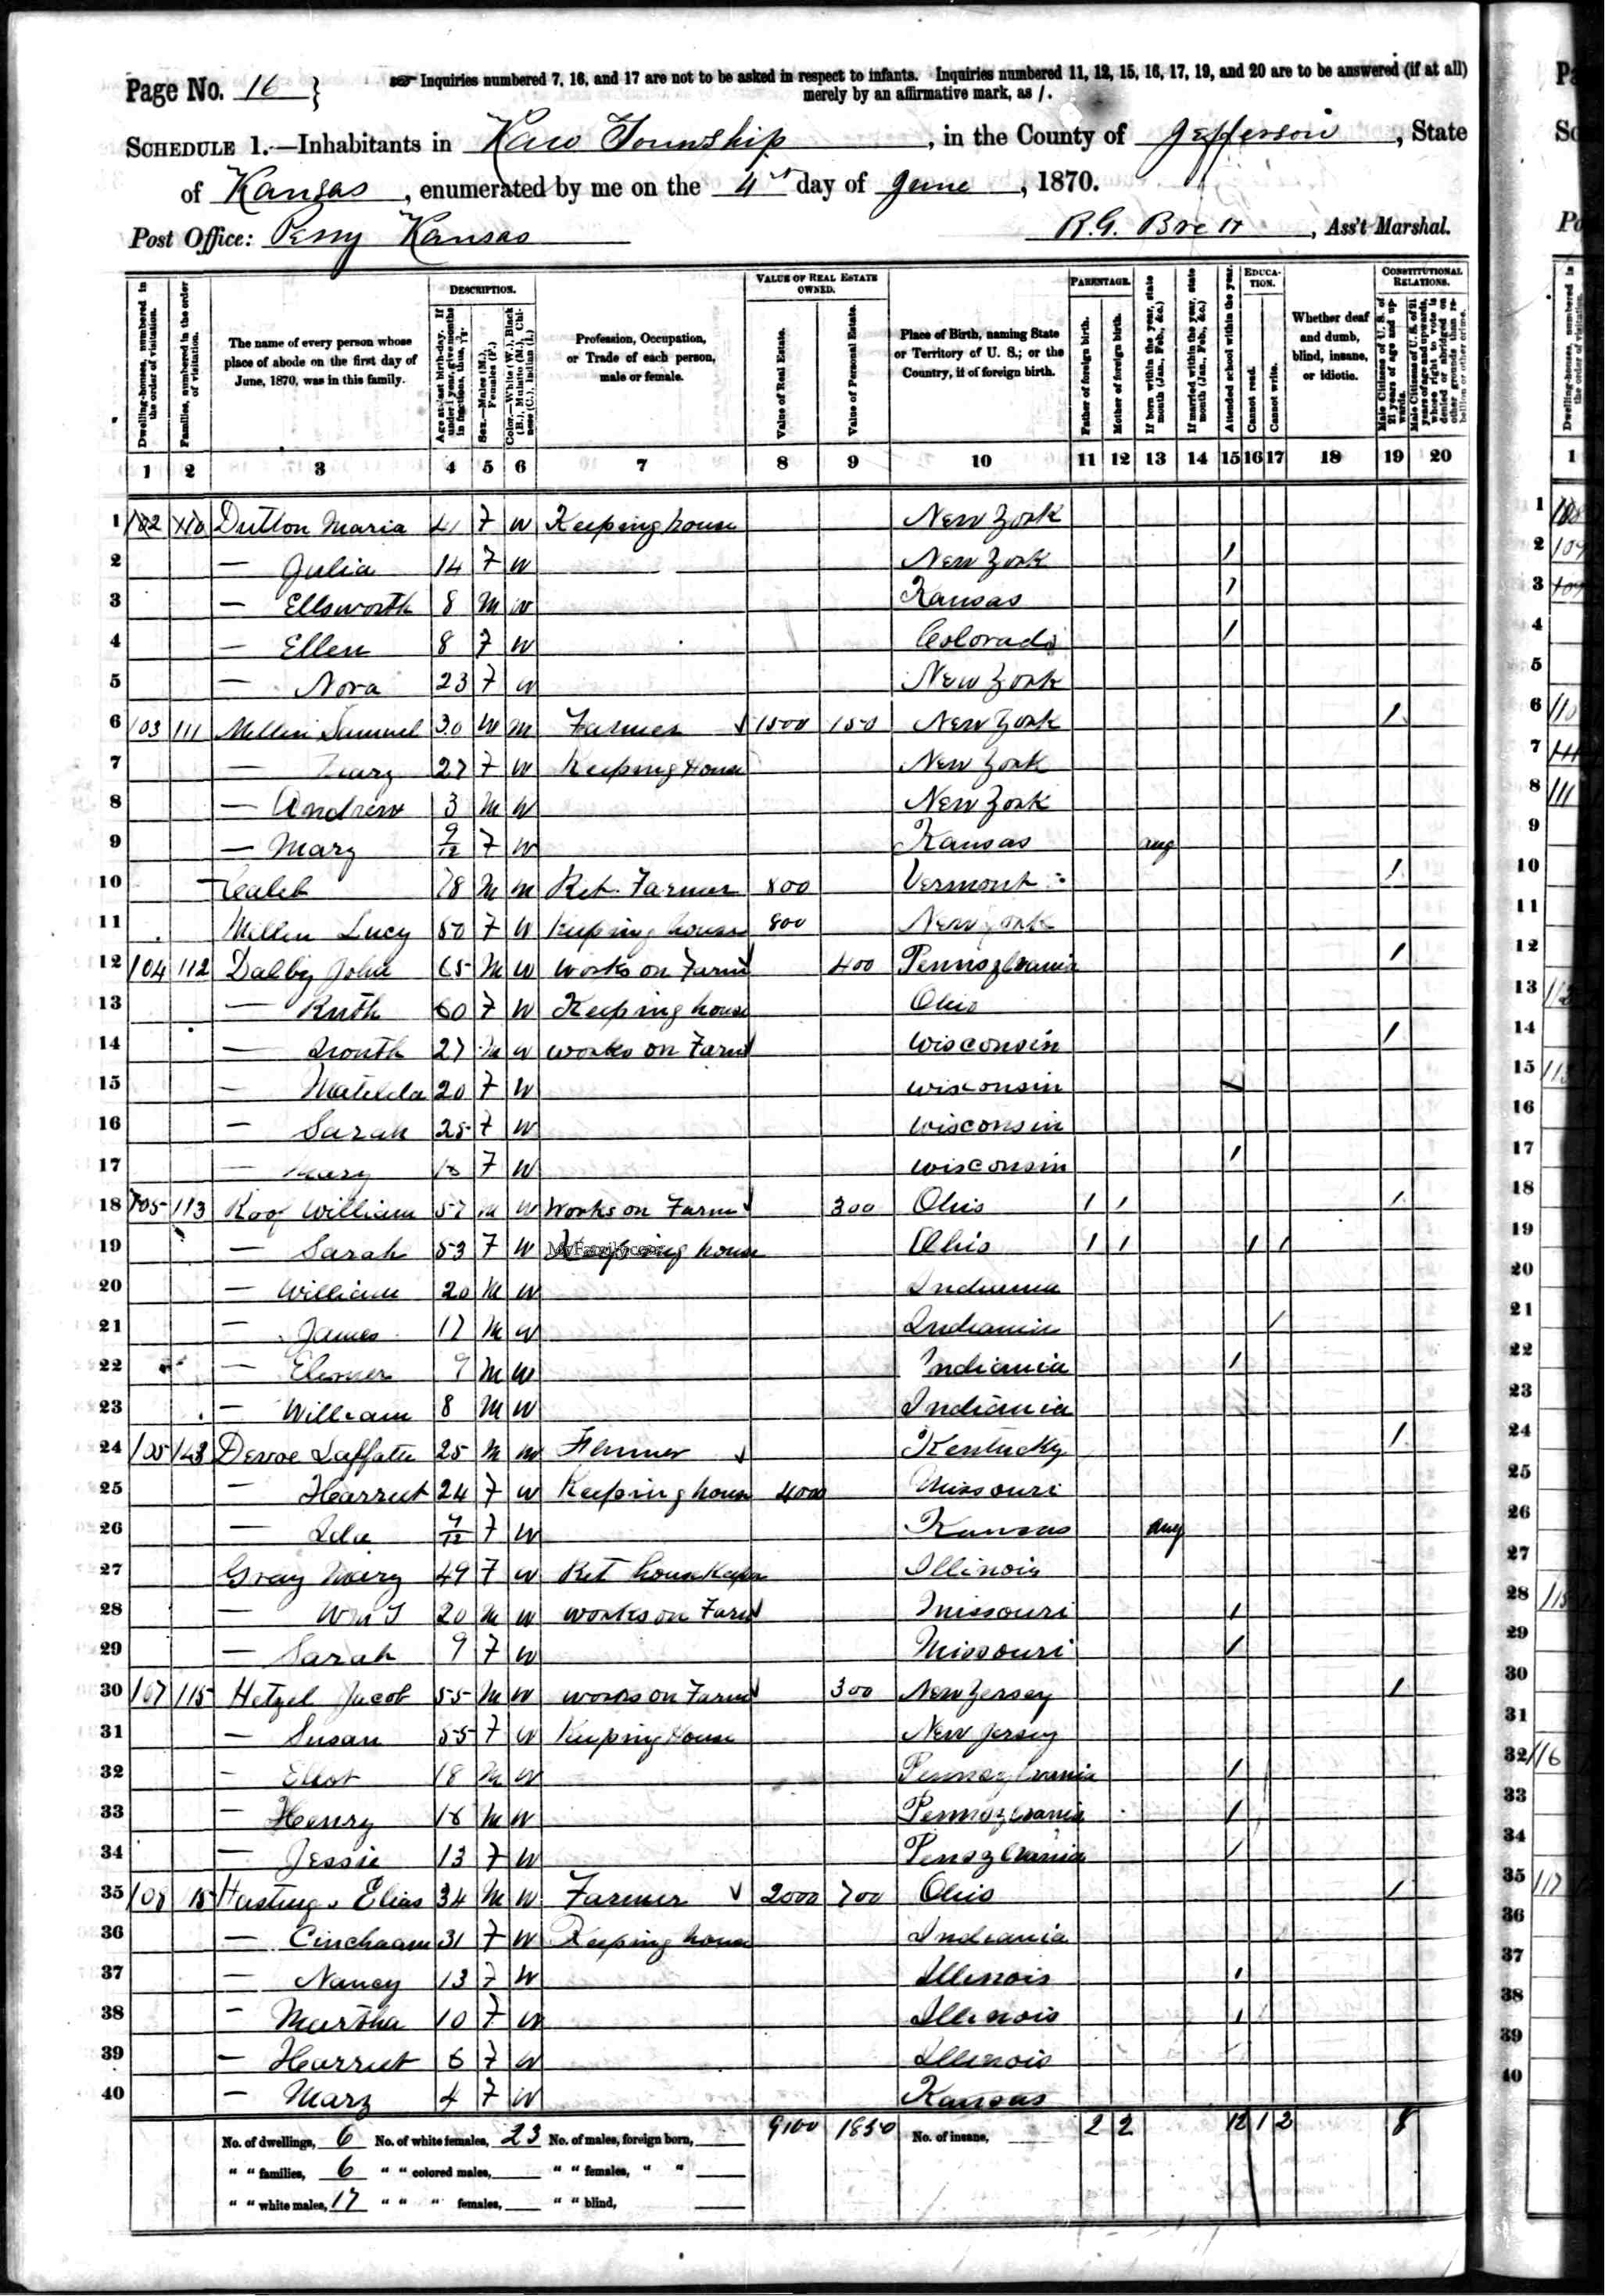 Page No. 16 } Inquiries numbered 7, 16, and 17 are not to be asked in respect to infants. Inquiries numbered 11, 12, 15, 16, 17, 19, and 20 are to be answered (if at all)
merely by an affirmative mark, as /.
SCHEDULE 1.—Inhabitants in Kaw Township, in the County of Jefferson, State
of Kansas, enumerated by me on the 4 day of June, 1870.
Post Office: Perry Kansas R.G. , Ass't Marshal.
DESCRIPTION. VALUE OF REAL ESTATE OWNED. PARENTAGE. EDUCATION. CONSTITUTIONAL RELATIONS.
Dwelling-houses, numbered in the order of visitation.
Families, numbered in the order of visitation.
The name of every person whose place of abode on the first day of June, 1870, was in this family.
Age at last birth-day. If under 1 year, give months in fractions, thus,
Sex.—Males (M.), Females (F.)
Color.—White (W.), Black (B.), Mulatto (M.), Chinese (C.), Indian (I.)
Profession, Occupation, or Trade of each person, male or female.
Value of Real Estate.
Value of Personal Estate.
Place of Birth, naming State or Territory of U. S.; or the Country, if of foreign birth.
Father of foreign birth.
Mother of foreign birth.
If born within the year, state month (Jan., Feb., &c.)
If married within the year, state month (Jan., Feb., &c.)
Attended school within the year.
Cannot read.
Cannot write.
Whether deaf and dumb, blind, insane, or idiotic.
Male Citizens of U. S. of 21 years of age and upwards.
Male Citizens of U. S. of 21 years of age and upwards, whose right to vote is denied or abridged on other grounds than rebellion or other crime.
1 2 3 4 5 6 7 8 9 10 11 12 13 14 15 16 17 18 19 20
1 102 110 Dutton Maria 41 F W Keeping house New York
2 — Julia 14 F W New York /
3 — Ellsworth 8 M W Kansas /
4 — Ellen 8 F W Colorado /
5 — Nora 23 F W New York
6 103 111 Samuel 30 Farmer 1500 150 New York /
7 — Mary 27 F W Keeping House New York
8 — Andrew 3 M W New York
9 — Mary 9/12 F W Kansas Aug
10 — Caleb 78 M Ret. Farmer 800 Vermont /
11 Lucy 50 F W Keeping house 800 New York
12 104 112 Dalby John 65 M W Works on Farm 400 Pennsylvania /
13 — Ruth 60 F W Keeping house Ohio
14 — 27 M W Works on Farm Wisconsin /
15 — Matilda 20 F W Wisconsin
16 — Sarah 25 F W Wisconsin
17 — Mary F W Wisconsin /
18 105 113 Roof William 57 M W Works on Farm 300 Ohio / / /
19 — Sarah 53 F W Keeping house Ohio / / / /
MyFamily.com
20 — William 20 M W Indiana
21 — James 17 M W Indiania /
22 — 9 M W Indiania /
23 — William 8 M W Indiania
24 Devoe 25 M Farmer Kentucky /
25 — Harriet 24 F W Keeping house 4000 Missouri
26 — Ida F W Kansas Aug
27 Gray Mary 49 F W Ret Illinois
28 — Wm 20 M W Works on Farm Missouri /
29 — Sarah 9 F W Missouri /
30 107 115 Hetzel Jacob 55 M W Works on Farm 300 New Jersey /
31 — Susan 55 F W Keeping House New Jersey
32 — 18 M W Pennsylvania /
33 — Henry 16 M W Pennsylvania /
34 — Jessie 13 F W /
35 108 Hastings Elias 34 M W Farmer 2000 700 Ohio /
36 — 31 F W Keeping house Indiania
37 — Nancy 13 F W Illinois /
38 — Martha 10 F W Illinois /
39 — Harriet 6 F W Illinois
40 — Mary 4 F W Kansas
No. of dwellings, 6 No. of white females, 23 No. of males, foreign born, 9100 1850 No. of insane, 2 2 12 1 2 8
" " families, 6 " " colored males, " " females, " "
" " white males, 17 " " " females, " " blind,